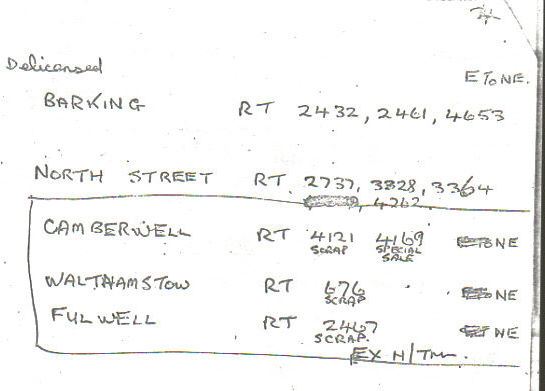 Delicensed
E TO NE.
BARKING RT 2432, 2461, 4653
NORTH STREET RT. 2737, 3328, 3364
, 4262.
CAMBERWELL RT 4121 4169 NE
SCRAP SPECIAL
SALE
WALTHAMSTOW RT 676 NE
SCRAP
FULWELL RT 2467 NE
SCRAP.
EX N/Tm.